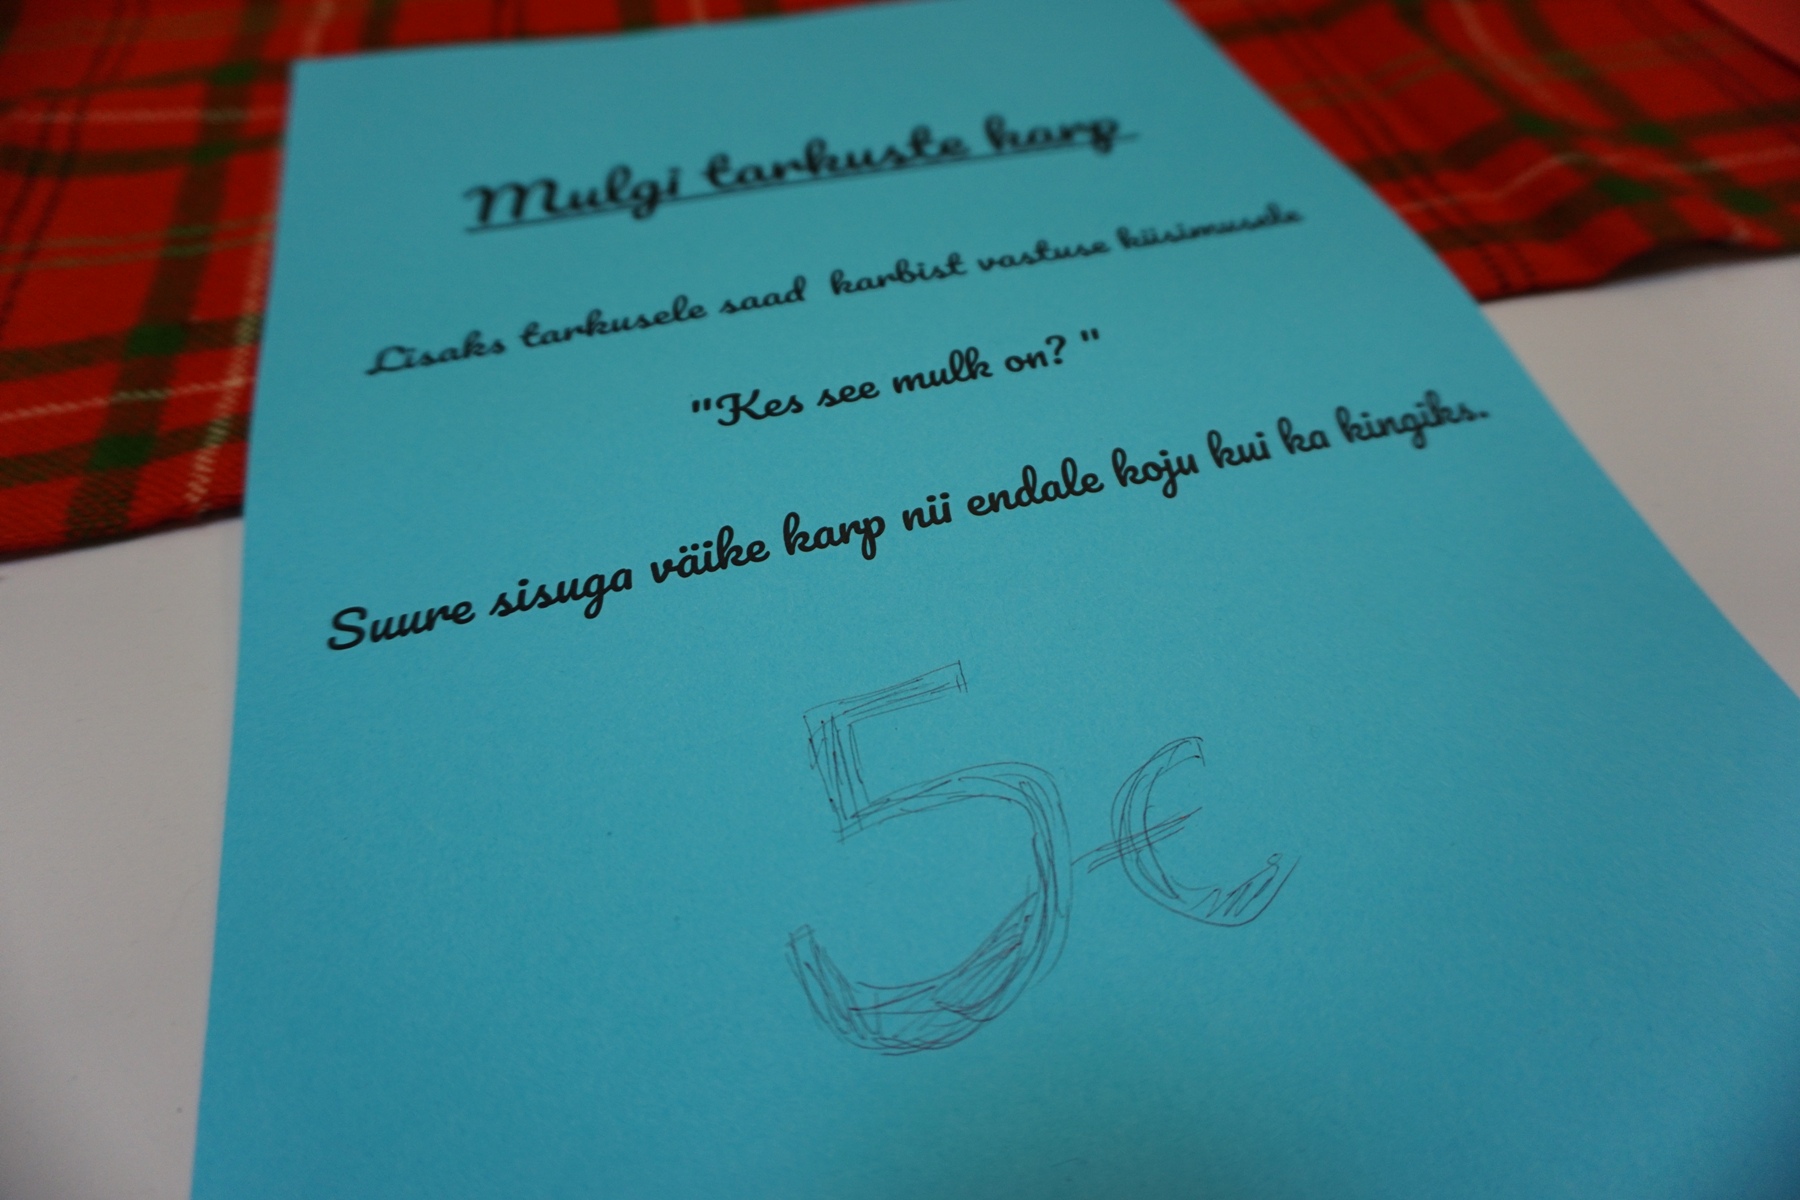 Mulgi tarkuste karp
Lisaks tarkusele saad karbist vastuse küsimusele
"Kes see mulk on? "
Suure sisuga väike karp nii endale koju kui ka kingiks.
5 €